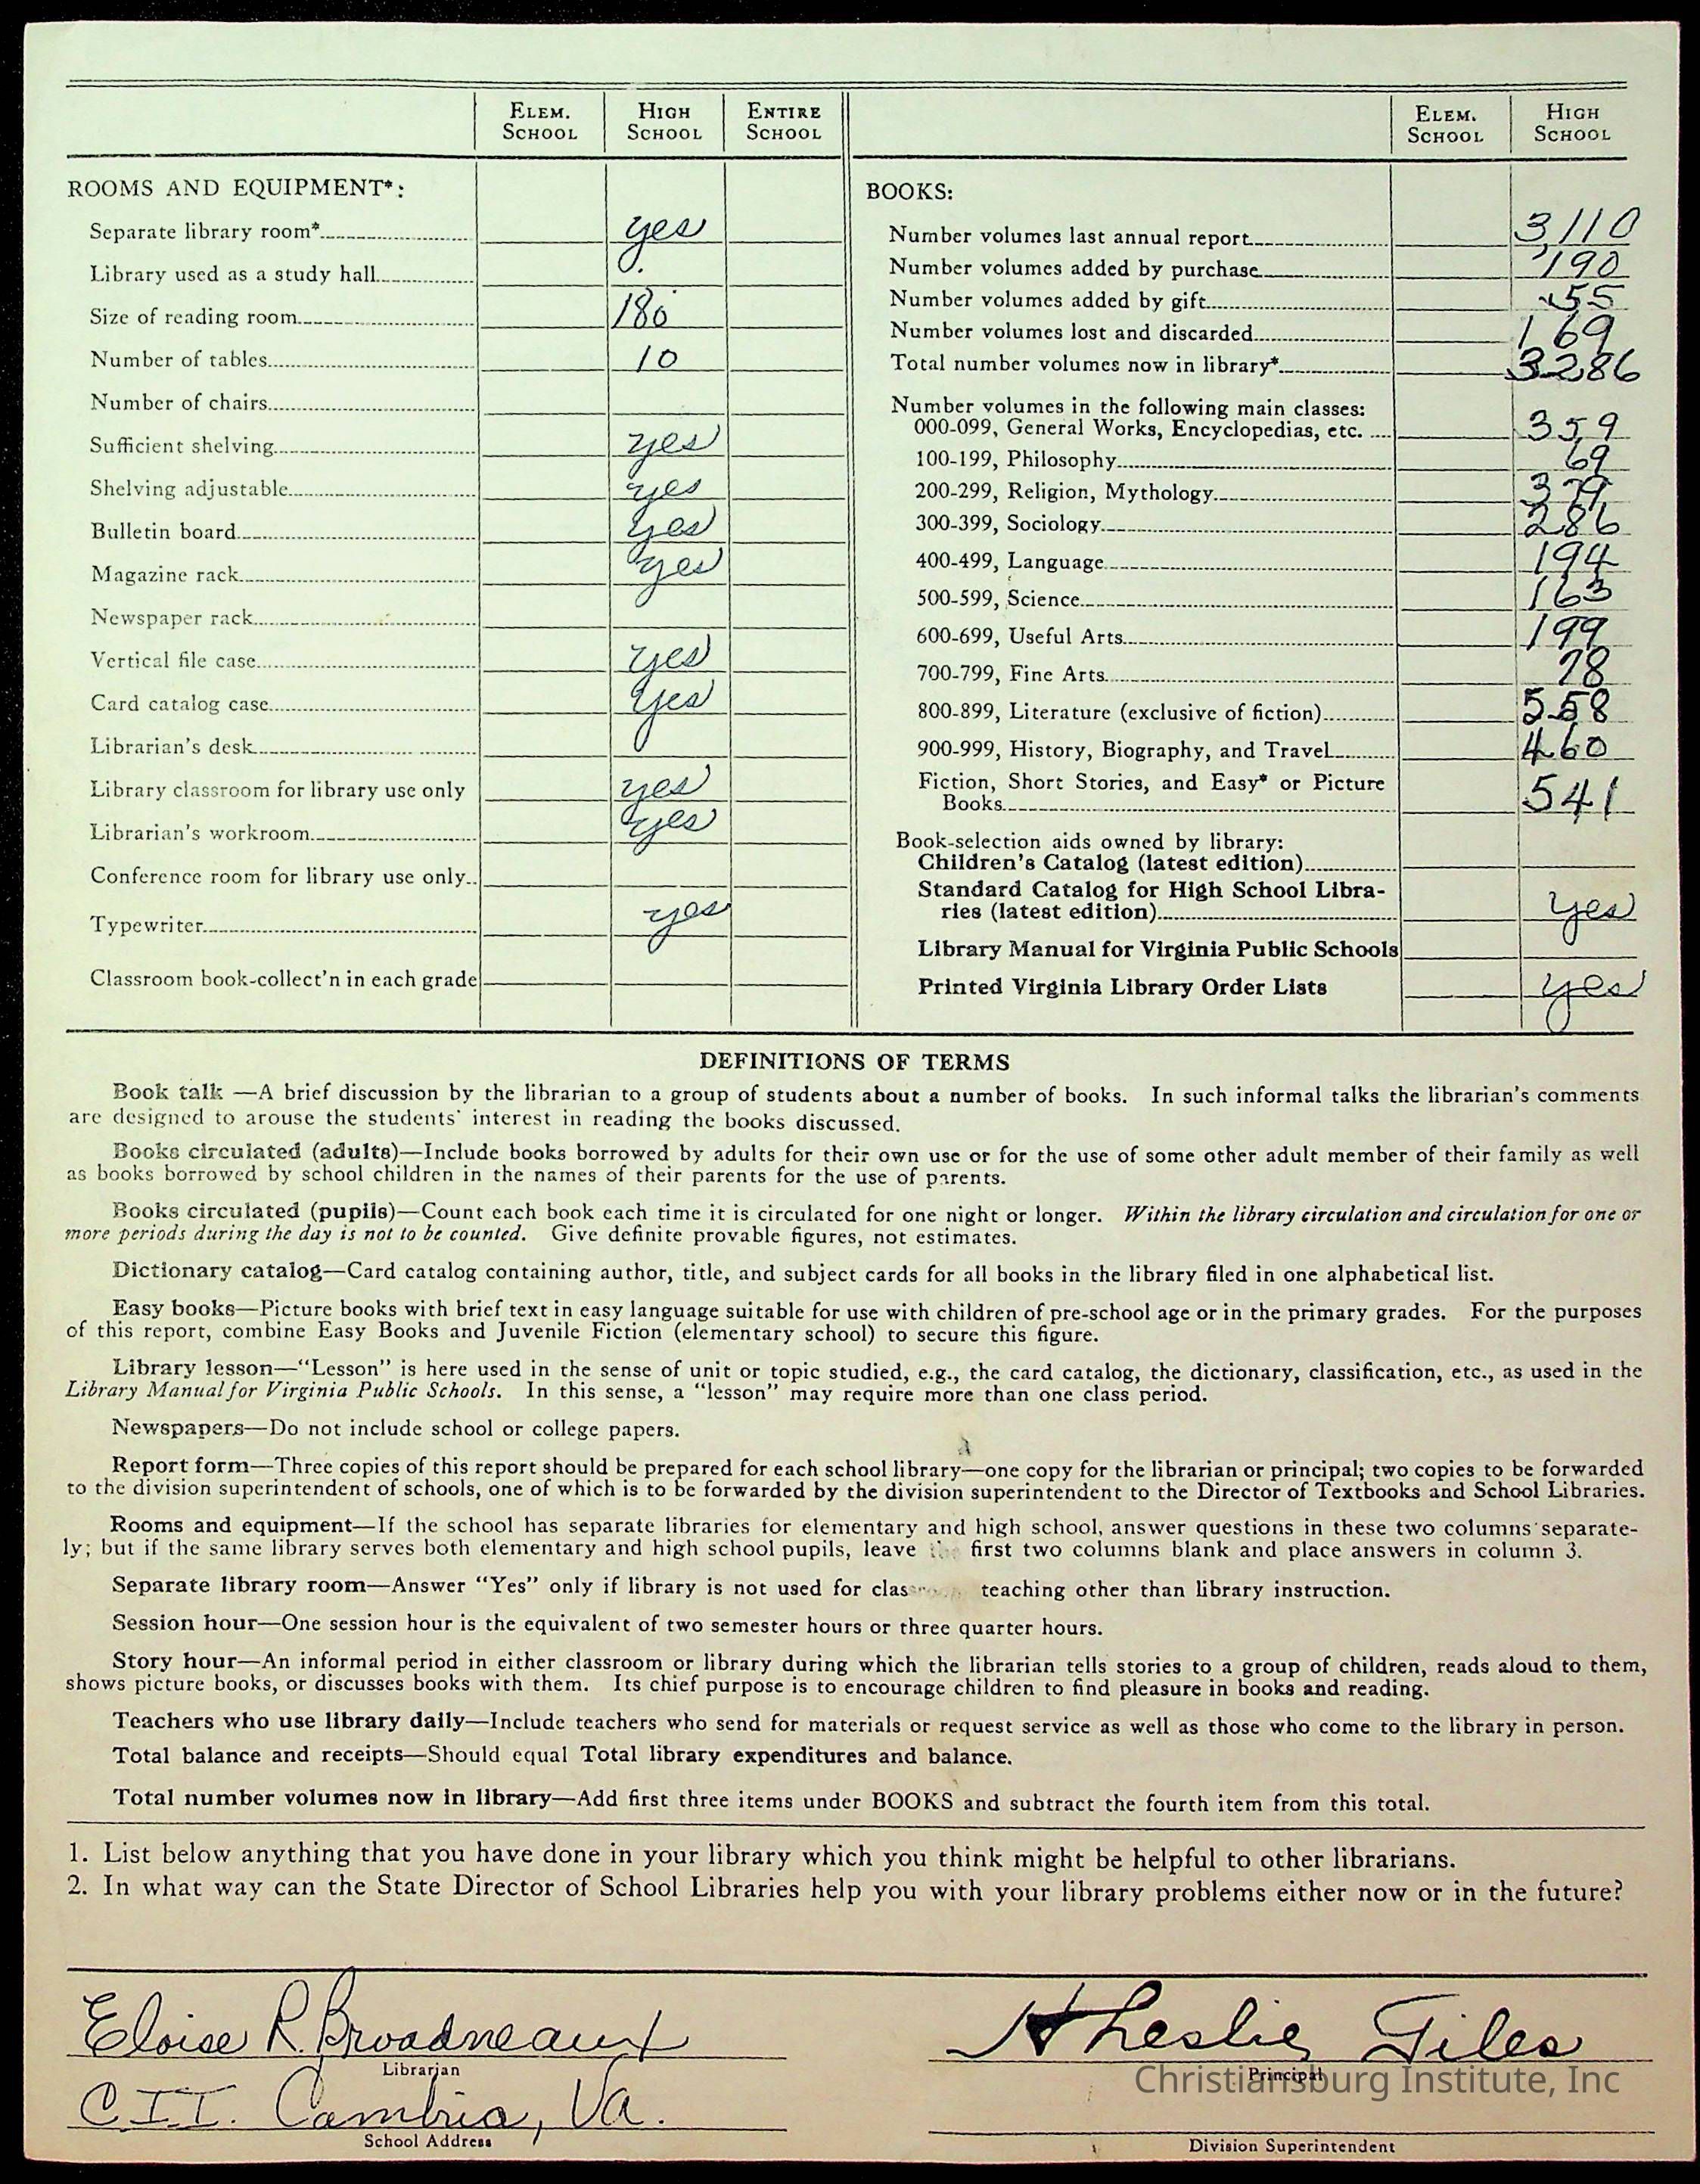 ELEM. SCHOOL HIGH SCHOOL ENTIRE SCHOOL
ROOMS AND EQUIPMENT*:
Separate library room* yes
Library used as a study hall
Size of reading room 180
Number of tables 10
Number of chairs
Sufficient shelving yes
Shelving adjustable yes
Bulletin board yes
Magazine rack yes
Newspaper rack
Vertical file case yes
Card catalog case yes
Librarian's desk
Library classroom for library use only yes
Librarian's workroom yes
Conference room for library use only
Typewriter yes
Classroom book-collect'n in each grade
ELEM. SCHOOL HIGH SCHOOL
BOOKS:
Number volumes last annual report 3,110
Number volumes added by purchase 190
Number volumes added by gift 55
Number volumes lost and discarded 169
Total number volumes now in library* 3286
Number volumes in the following main classes:
000-099, General Works, Encyclopedias, etc. 359
100-199, Philosophy 69
200-299, Religion, Mythology 379
300-399, Sociology 286
400-499, Language 194
500-599, Science 163
600-699, Useful Arts 199
700-799, Fine Arts 78
800-899, Literature (exclusive of fiction) 558
900-999, History, Biography, and Travel 460
Fiction, Short Stories, and Easy* or Picture
Books 541
Book-selection aids owned by library:
Children's Catalog (latest edition)
Standard Catalog for High School Libra-
ries (latest edition) yes
Library Manual for Virginia Public Schools
Printed Virginia Library Order Lists yes
DEFINITIONS OF TERMS
Book talk —A brief discussion by the librarian to a group of students about a number of books. In such informal talks the librarian's comments
are designed to arouse the students' interest in reading the books discussed.
Books circulated (adults)—Include books borrowed by adults for their own use or for the use of some other adult member of their family as well
as books borrowed by school children in the names of their parents for the use of parents.
Books circulated (pupils)—Count each book each time it is circulated for one night or longer. Within the library circulation and circulation for one or
more periods during the day is not to be counted. Give definite provable figures, not estimates.
Dictionary catalog—Card catalog containing author, title, and subject cards for all books in the library filed in one alphabetical list.
Easy books—Picture books with brief text in easy language suitable for use with children of pre-school age or in the primary grades. For the purposes
of this report, combine Easy Books and Juvenile Fiction (elementary school) to secure this figure.
Library lesson—"Lesson" is here used in the sense of unit or topic studied, e.g., the card catalog, the dictionary, classification, etc., as used in the
Library Manual for Virginia Public Schools. In this sense, a "lesson" may require more than one class period.
Newspapers—Do not include school or college papers.
Report form—Three copies of this report should be prepared for each school library—one copy for the librarian or principal; two copies to be forwarded
to the division superintendent of schools, one of which is to be forwarded by the division superintendent to the Director of Textbooks and School Libraries.
Rooms and equipment—If the school has separate libraries for elementary and high school, answer questions in these two columns separate-
ly; but if the same library serves both elementary and high school pupils, leave first two columns blank and place answers in column 3.
Separate library room—Answer "Yes" only if library is not used for teaching other than library instruction.
Session hour—One session hour is the equivalent of two semester hours or three quarter hours.
Story hour—An informal period in either classroom or library during which the librarian tells stories to a group of children, reads aloud to them,
shows picture books, or discusses books with them. Its chief purpose is to encourage children to find pleasure in books and reading.
Teachers who use library daily—Include teachers who send for materials or request service as well as those who come to the library in person.
Total balance and receipts—Should equal Total library expenditures and balance.
Total number volumes now in library—Add first three items under BOOKS and subtract the fourth item from this total.
1. List below anything that you have done in your library which you think might be helpful to other librarians.
2. In what way can the State Director of School Libraries help you with your library problems either now or in the future?
Eloise R. Broadneaux
Librarian
C.I.I. Cambria, Va.
School Address
H Leslie Giles
Principal
Christiansburg Institute, Inc
Division Superintendent